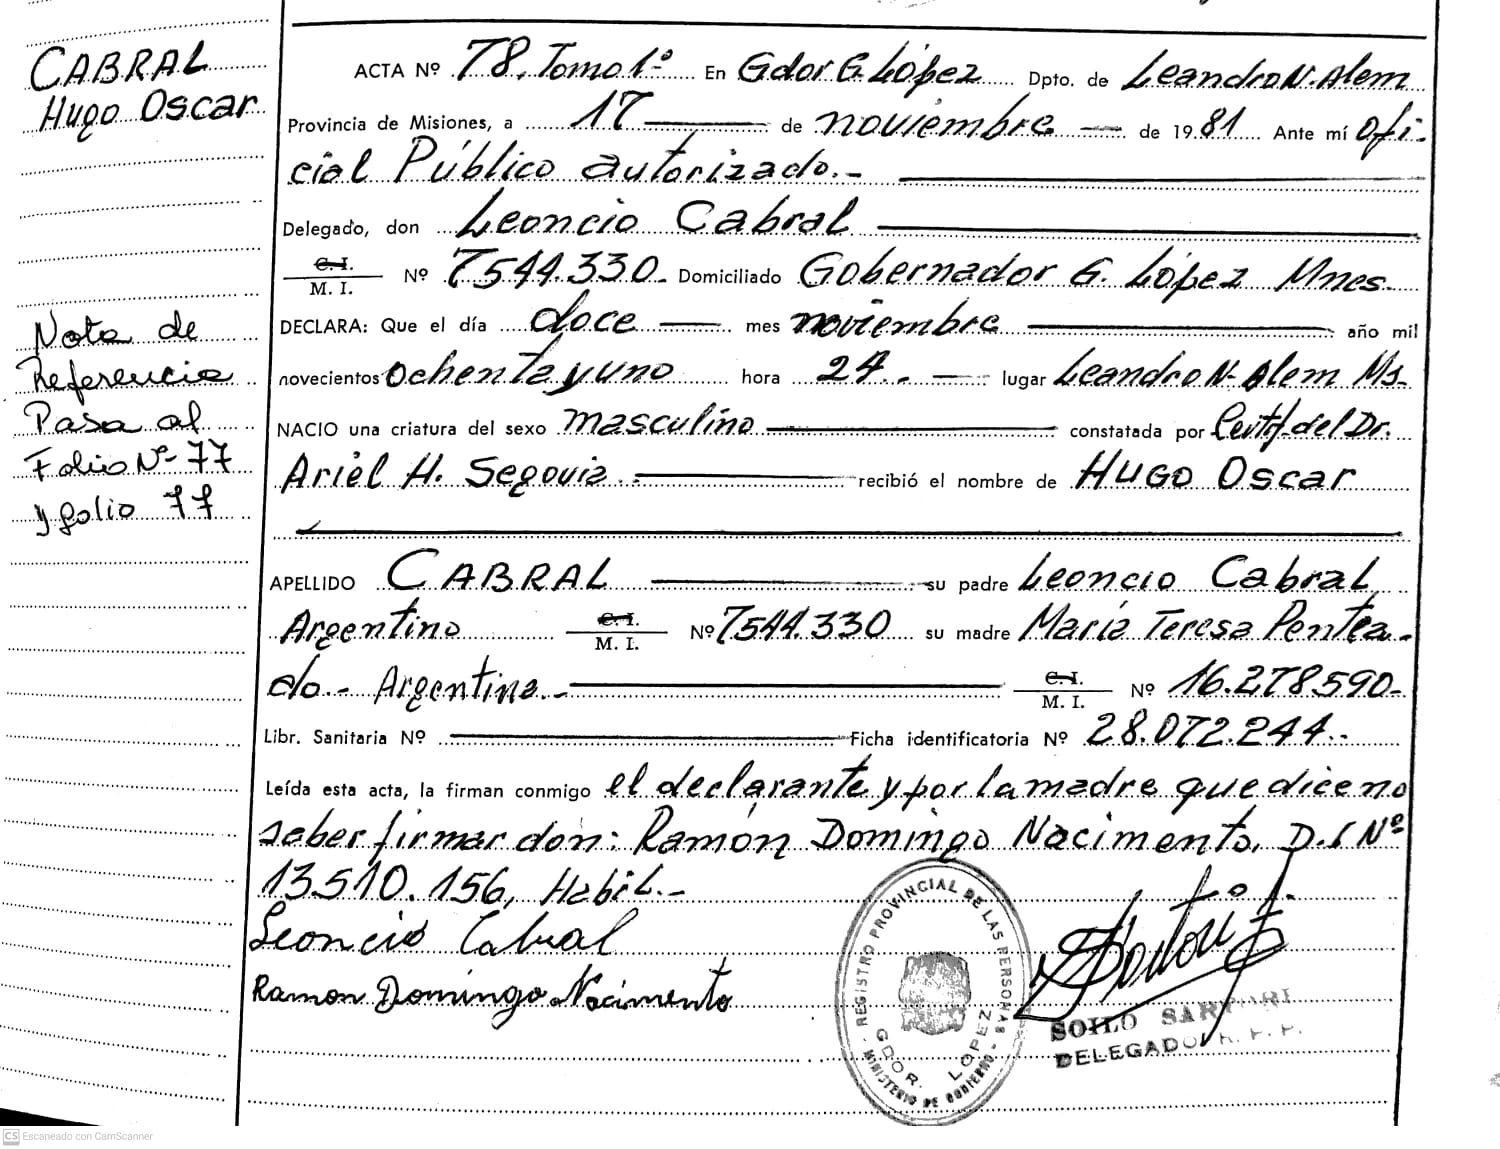 CABRAL
Hugo Oscar
Nota de
Referencia
Pasa al
Folio Nº 77
y folio 77
ACTA Nº 78, Tomo 1º En Gdor G. López Dpto. de Leandro N. Alem
Provincia de Misiones, a 17 de noviembre de 1981 Ante mí Ofi-
cial Público autorizado.-
Delegado, don Leoncio Cabral
C.I.
M. I. Nº 7544.330 Domiciliado Gobernador G. López Mnes.
DECLARA: Que el día doce mes noviembre año mil
novecientos ochenta y uno hora 24 lugar Leandro N. Alem Ms.
NACIO una criatura del sexo masculino constatada por Certif. del Dr.
Ariel H. Segovia. recibió el nombre de HUGO Oscar
APELLIDO CABRAL su padre Leoncio Cabral
Argentino C.I. M. I. Nº 7544.330 su madre María Teresa Pentea-
do.- Argentina.- C.I. M. I. Nº 16.278.590-
Libr. Sanitaria Nº Ficha identificatoria Nº 28.072.244.-
Leída esta acta, la firman conmigo el declarante y por la madre que dice no
saber firmar don: Ramón Domingo Nacimento, D.I Nº
13.510.156, Habil.-
Leoncio Cabral
Ramon Domingo Nacimento
REGISTRO PROVINCIAL DE LAS PERSONAS
GDOR. LOPEZ
MINISTERIO DE GOBIERNO
SOILO SARTORI
DELEGADO R. P. P.
CS Escaneado con CamScanner